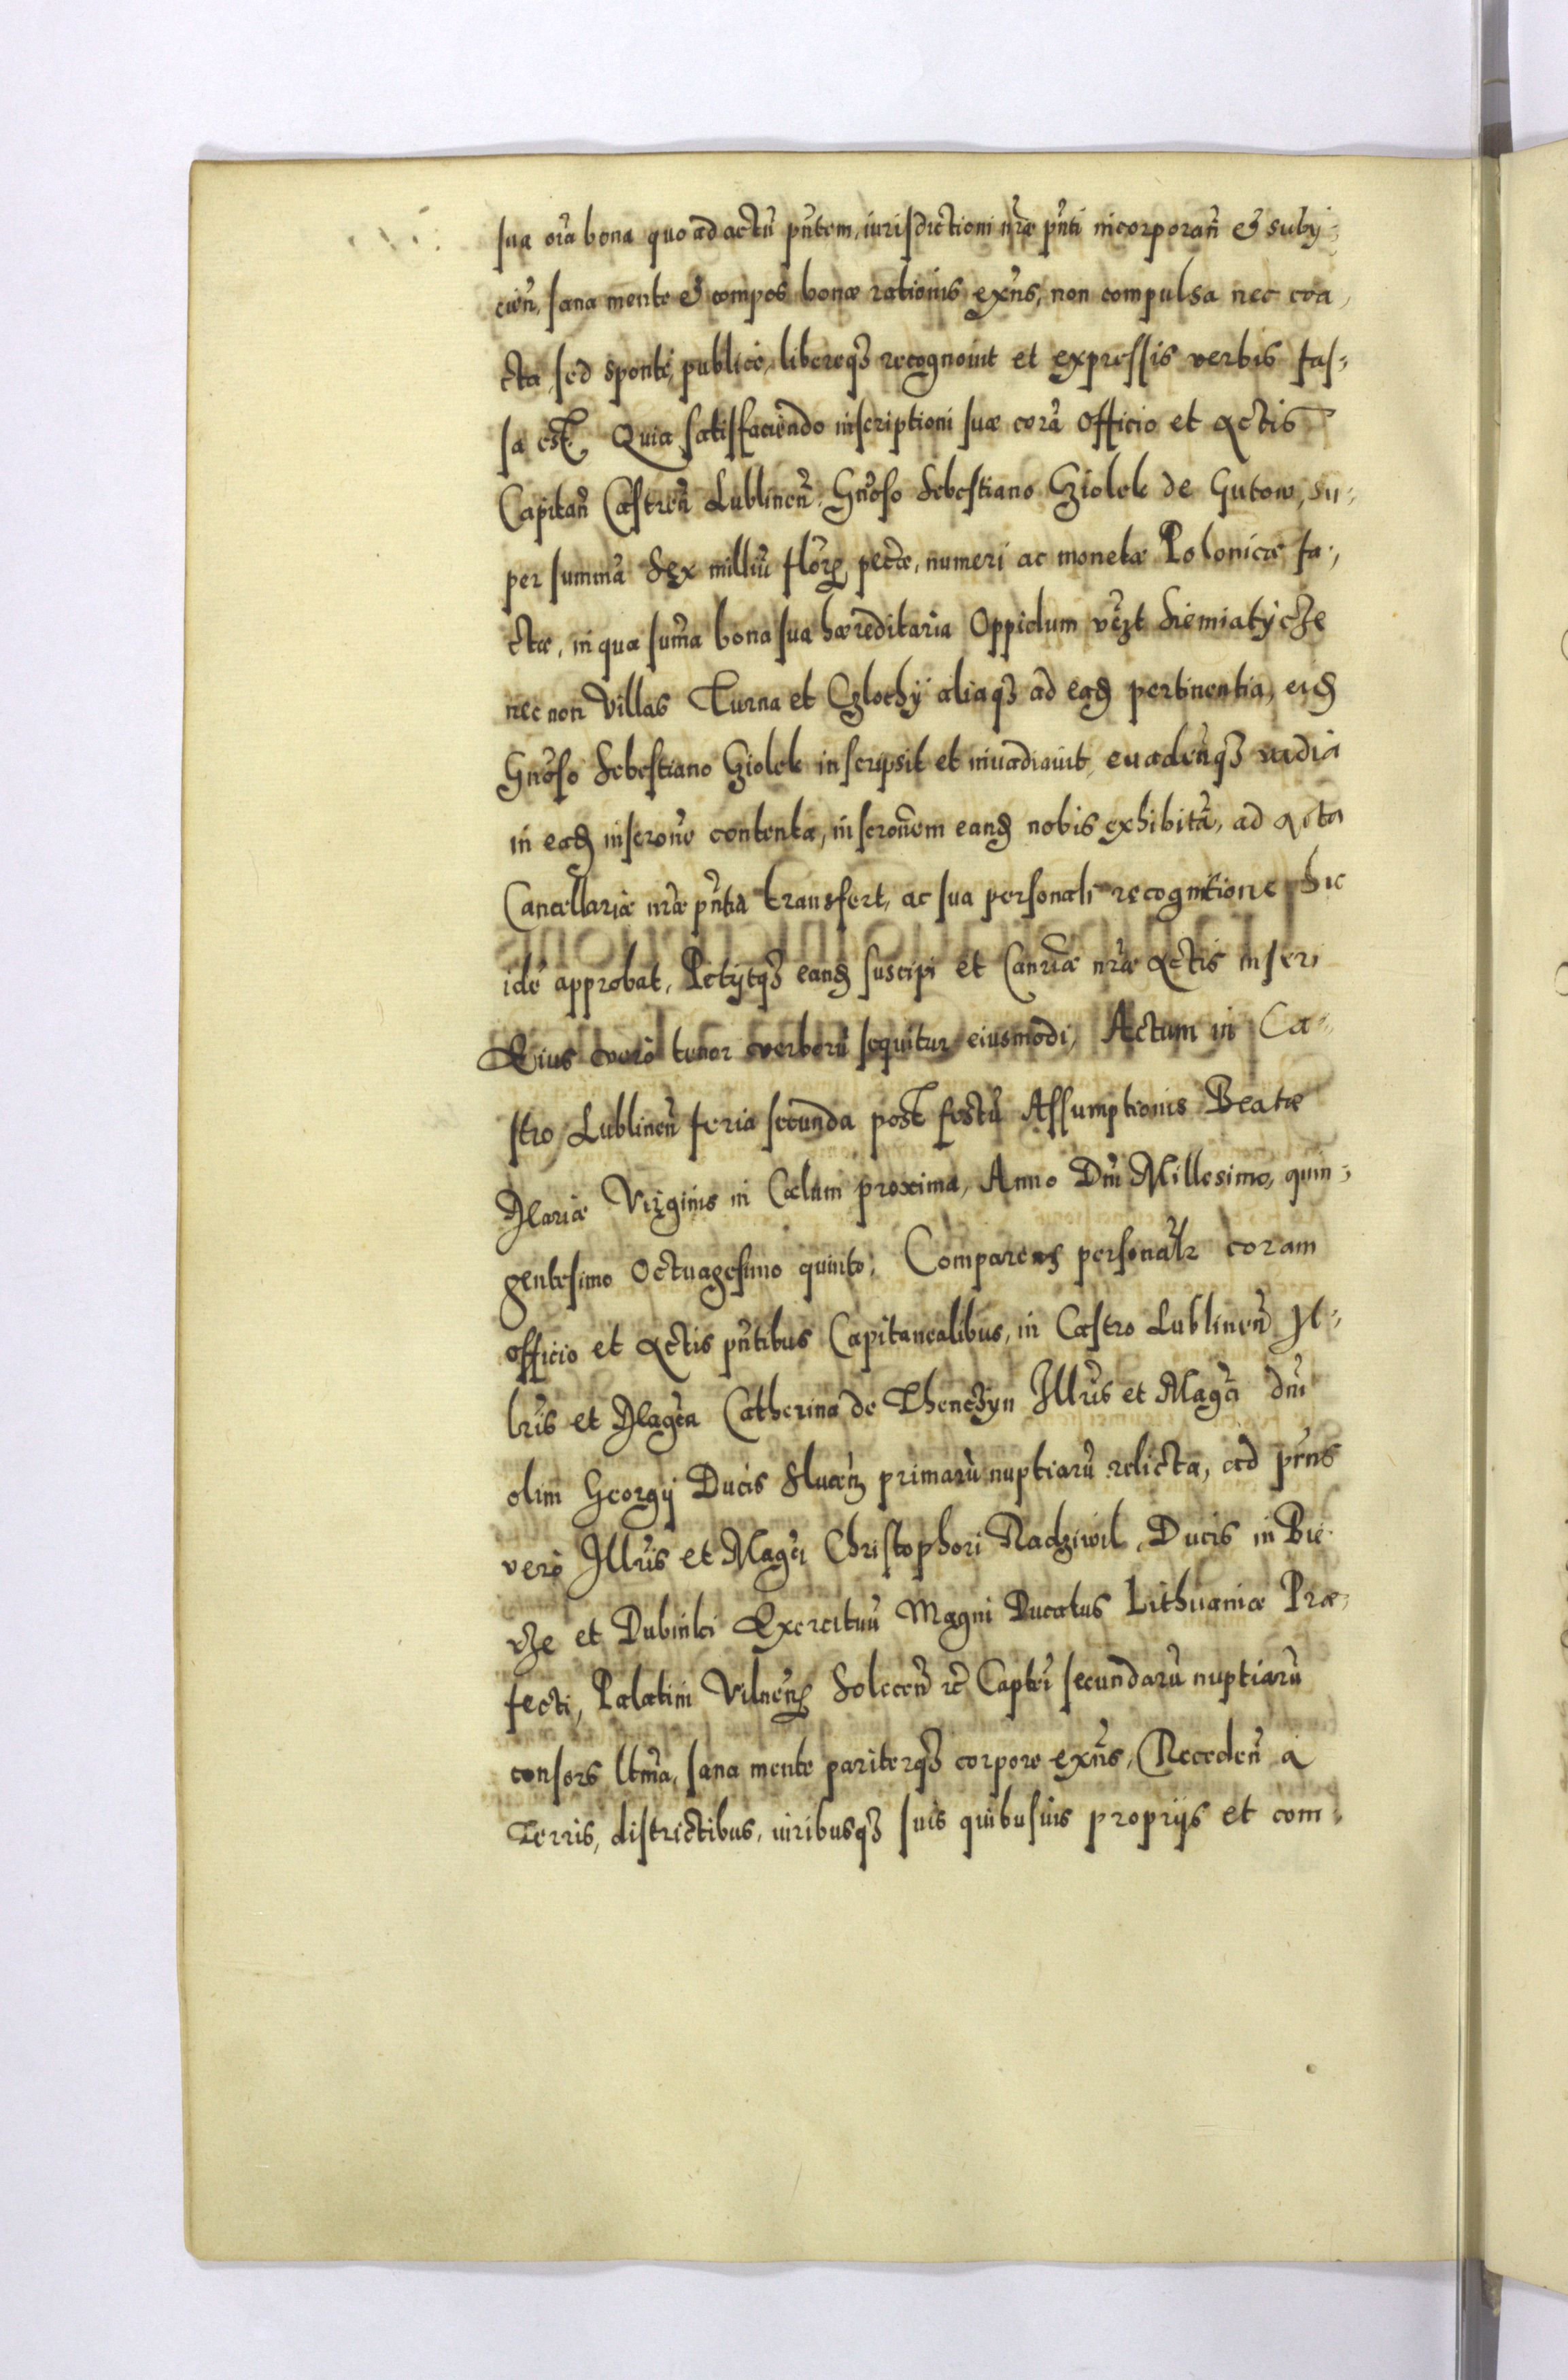 sua oĩa bona quo ad actũ pñtem, iurisdictioni nr̃æ pñti incorporañ & suby⸗
cieñ, sana mente & compos bonæ rationis exñs, non compulsa nec coa
cta, sed sponte, publice, libereqȝ recognouit et expressis verbis fas⸗
sa est. Quia satisfaciendo inscriptioni suæ corã Officio et Actis
Capitañ Castreñ Lublineñ, Gñoso Sebestiano Gziolek de Gutow, su⸗
per summã Sex milliũ florꝝ pecũæ, numeri ac monetæ Polonicæ fa⸗
ctæ, in qua sum̃a bona sua hæreditaria Oppidum vc̃zt Siemiatycze
nec non Villas Turna et Czlochy aliaqȝ ad ead pertinentia, eid
Gñoso Sebestiano Gziolek inscripsit et inuadiauit, euadeñqȝ vadia
in ead inscrone contenta, inscronem eand nobis exhibitã, ad Acta
Cancellariæ nr̃æ pñtia transfert, ac sua personali recognitione hic
idẽ approbat, Petijtqȝ eand suscipi et Canriæ nr̃æ Actis inseri
Eius vero tenor verborũ sequitur eiusmodi, Actum in Ca⸗
stro Lublineñ feria secunda post festũ Assumptionis Beatæ
Mariæ Virginis in Cælum proxima, Anno Dñi Millesimo, quin⸗
gentesimo Octuagesimo quinto. Comparens personalr coram
officio et Actis pñtibus Capitanealibus, in Castro Lublineñ Il⸗
lris et Magca Catherina de Thenczyn Illris et Magci dñi
olim Georgij Ducis Slucen primarũ nuptiarũ relicta, ad prns
vero Illris et Magci Christophori Radziwil, Ducis in Bie⸗
rze et Dubinki Exercituũ Magni Ducatus Lithuaniæ Præ⸗
fecti, Palatini Vilnens Soleceñ rc̃ Captei secundarũ nuptiarũ
consors ltma, sana mente pariterqȝ corpore exñs, Recedeñ a
Terris, districtibus, iuribusqȝ suis quibusuis proprijs et com⸗